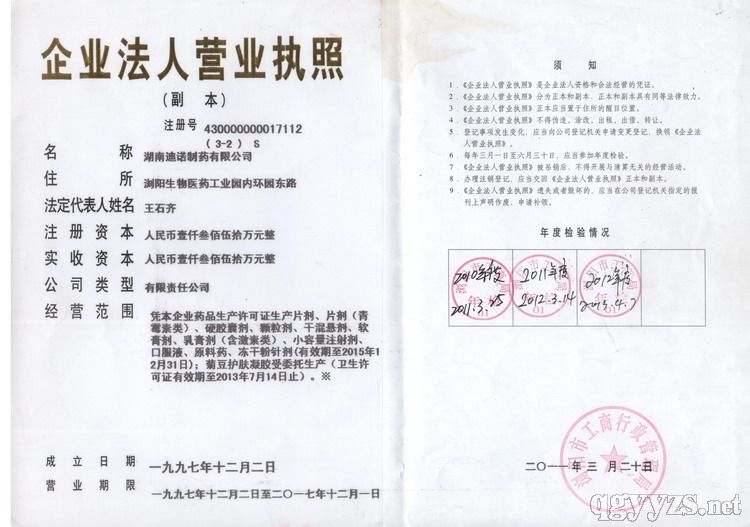 企业法人营业执照
(副 本)
注册号 430000000017112
(3-2) S
名 称 湖南迪诺制药有限公司
住 所 浏阳生物医药工业园内环园东路
法定代表人姓名 王石齐
注册资本 人民币壹仟叁佰伍拾万元整
实收资本 人民币壹仟叁佰伍拾万元整
公司类型 有限责任公司
经营范围 凭本企业药品生产许可证生产片剂、片剂(青
霉素类)、硬胶囊剂、颗粒剂、干混悬剂、软
膏剂、乳膏剂(含激素类)、小容量注射剂、
口服液、原料药、冻干粉针剂(有效期至2015年1
2月31日);菊豆护肤凝胶受委托生产(卫生许
可证有效期至2013年7月14日止)。※
成立日期 一九九七年十二月二日
营业期限 一九九七年十二月二日至二〇一七年十二月一日
须 知
1.《企业法人营业执照》是企业法人资格和合法经营的凭证。
2.《企业法人营业执照》分为正本和副本，正本和副本具有同等法律效力。
3.《企业法人营业执照》正本应当置于住所的醒目位置。
4.《企业法人营业执照》不得伪造、涂改、出租、出借、转让。
5.登记事项发生变化，应当向公司登记机关申请变更登记，换领《企业法
人营业执照》。
6.每年三月一日至六月三十日，应当参加年度检验。
7.《企业法人营业执照》被吊销后，不得开展与清算无关的经营活动。
8.办理注销登记，应当交回《企业法人营业执照》正本和副本。
9.《企业法人营业执照》遗失或者毁坏的，应当在公司登记机关指定的报
刊上声明作废，申请补领。
年度检验情况
2010年度 2011年度 2012年度
2011.3.25 2012.3.14
01
浏阳市工商行政管理局
二〇一一年三月二十日
qgyyzs.net